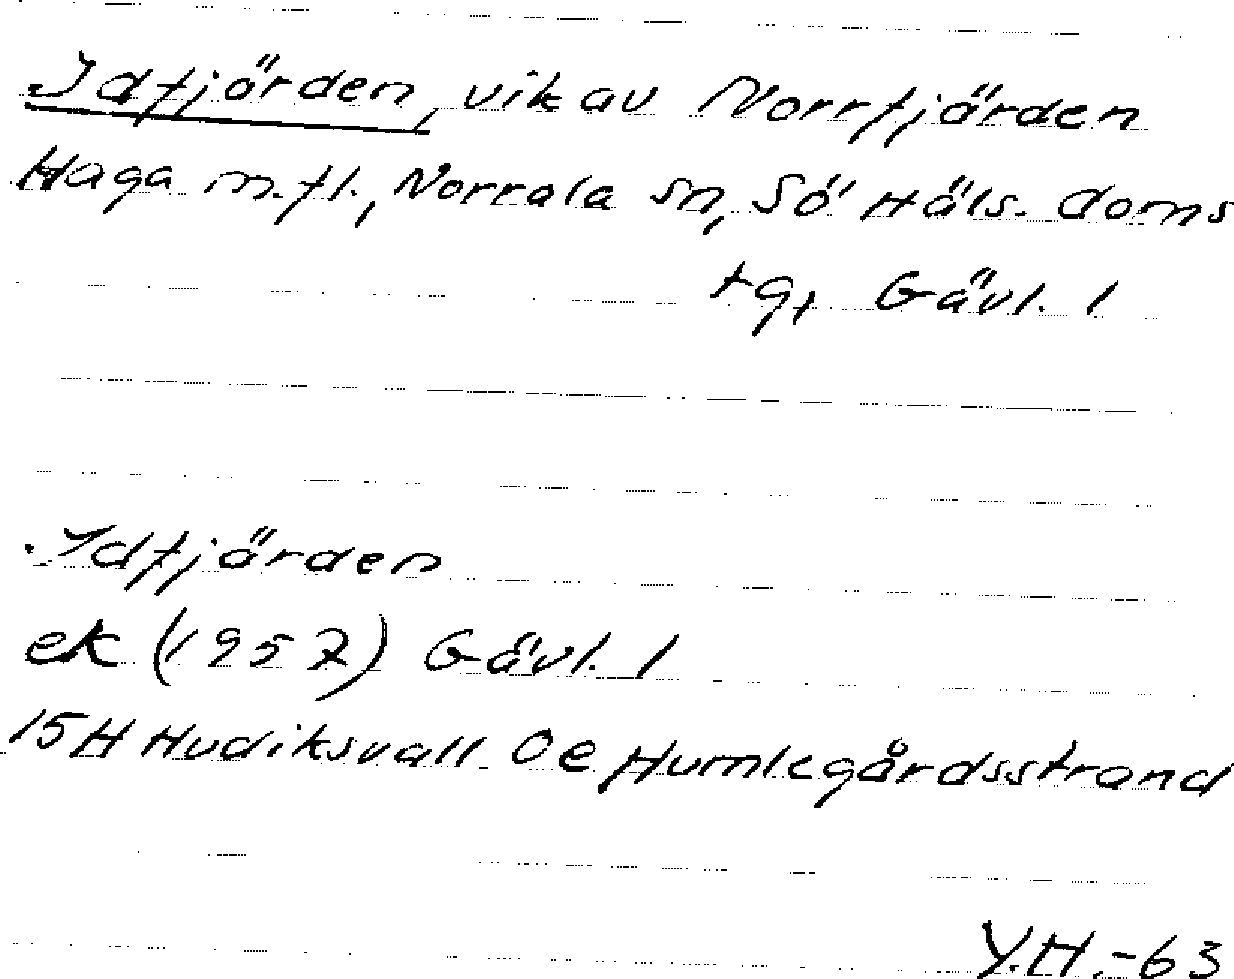 Idfjärden, vik av Norrfjärden
Haga m.fl., Norrala sn, Sö Häls. doms
tg, Gävl. l
Idfjärden
ek (1957) Gävl. l
15H Hudiksvall 0e Humlegårdsstrand
Y.H.-63